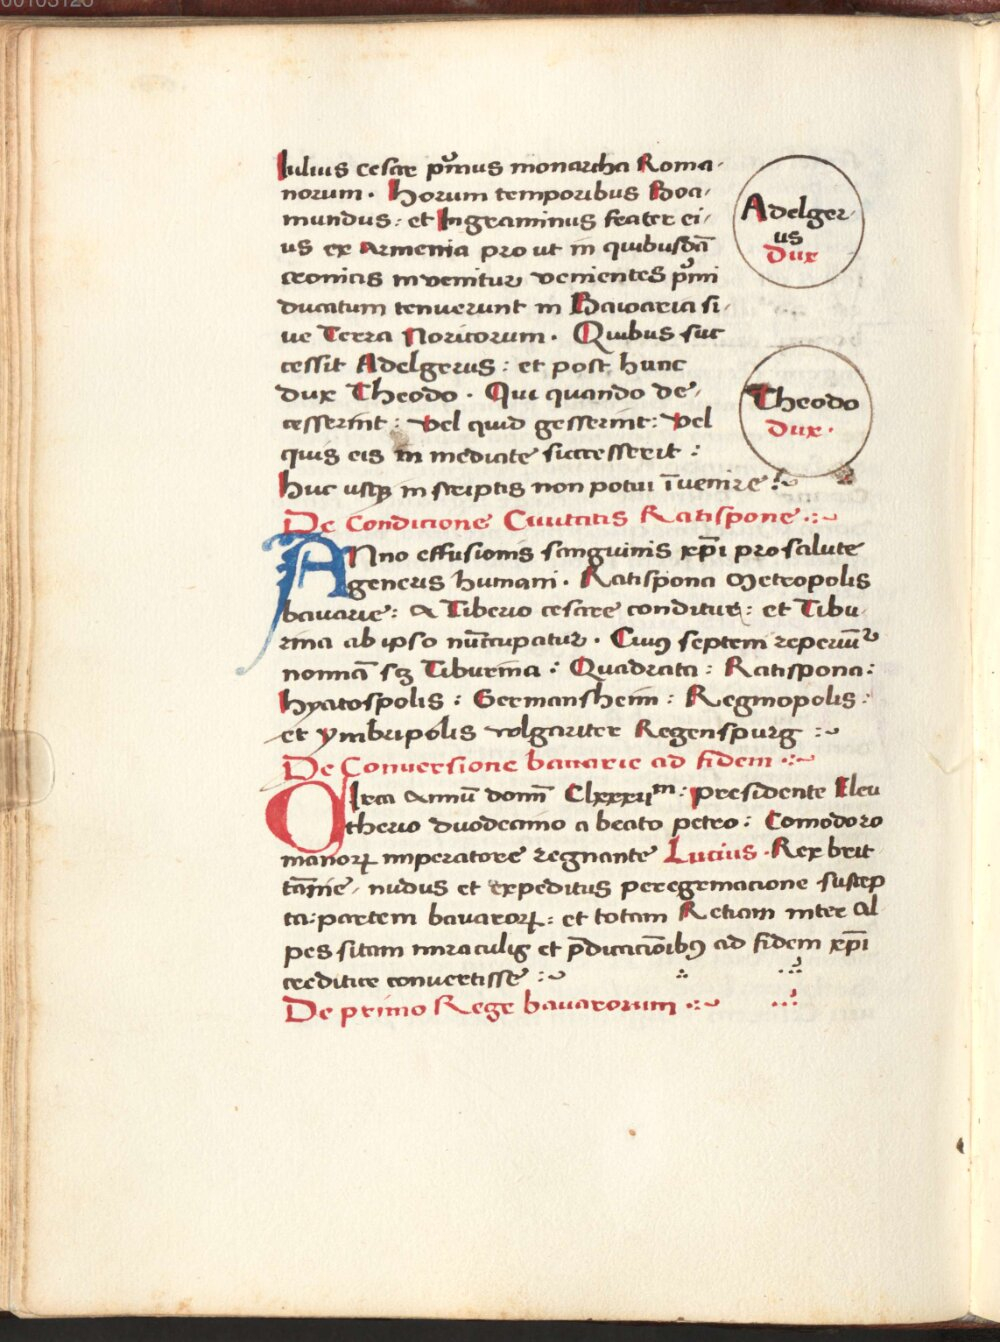 Iulius cesar p̄mus monarcha Roma
norum. Horum temporibus Boa,
mundus: et Ingraminus frater ei,
us ex Armenia pro ut in quibusdā
cronicis invenitur venientes p̄mi
ducatum tenuerunt in Bawaria si,
ue Terra Noricorum. Quibus suc
cessit Adelgerus: et post hunc
dux Theodo. Qui quando de,
cesserint: vel quid gesserint: vel
quis eis in mediate successerit:
huc usqꝫ in scriptis non potui īuenire:~
Adelger,
us
Dux
Theodo
dux.
De Condicione Ciuitatis Ratispone.:~
ANno effusionis sanguinis xp̄i pro salute
generis humani. Ratispona Metropolis
bavarie: a Tiberio cesare conditur: et Tibu,
rina ab ipso nūcupatur. Cuius septem reperiūtur
nomīa sꝫ Tiburina: Quadrata: Ratispona:
hyatospolis: Germansheim: Reginopolis:
et ymbripolis volgariter Regenspurg:~
De Conversione bavarie ad fidem.:~
CIrca Annū domī Clxxxijm: presidente Eleu
therio duodecimo a beato petro: Comodoro
manorꝝ imperatore regnante Lucius. Rex brit
tānie, nudus et expeditus peregrinacione suscep
ta: partem bavarorꝝ: et totam Retiam inter Al
pes sitam miraculis et p̄dicacōibꝰ ad fidem xp̄i
creditur convertisse:~
De primo Rege bavarorum.:~